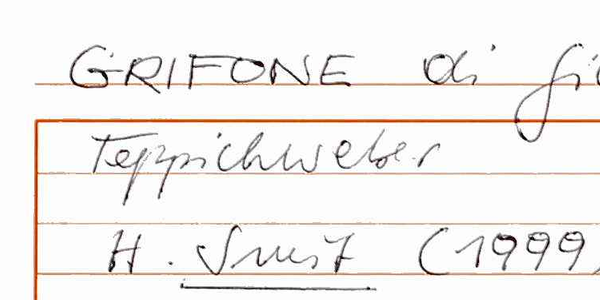 GRIFONE di
Teppichweber
H. Smit (1999)